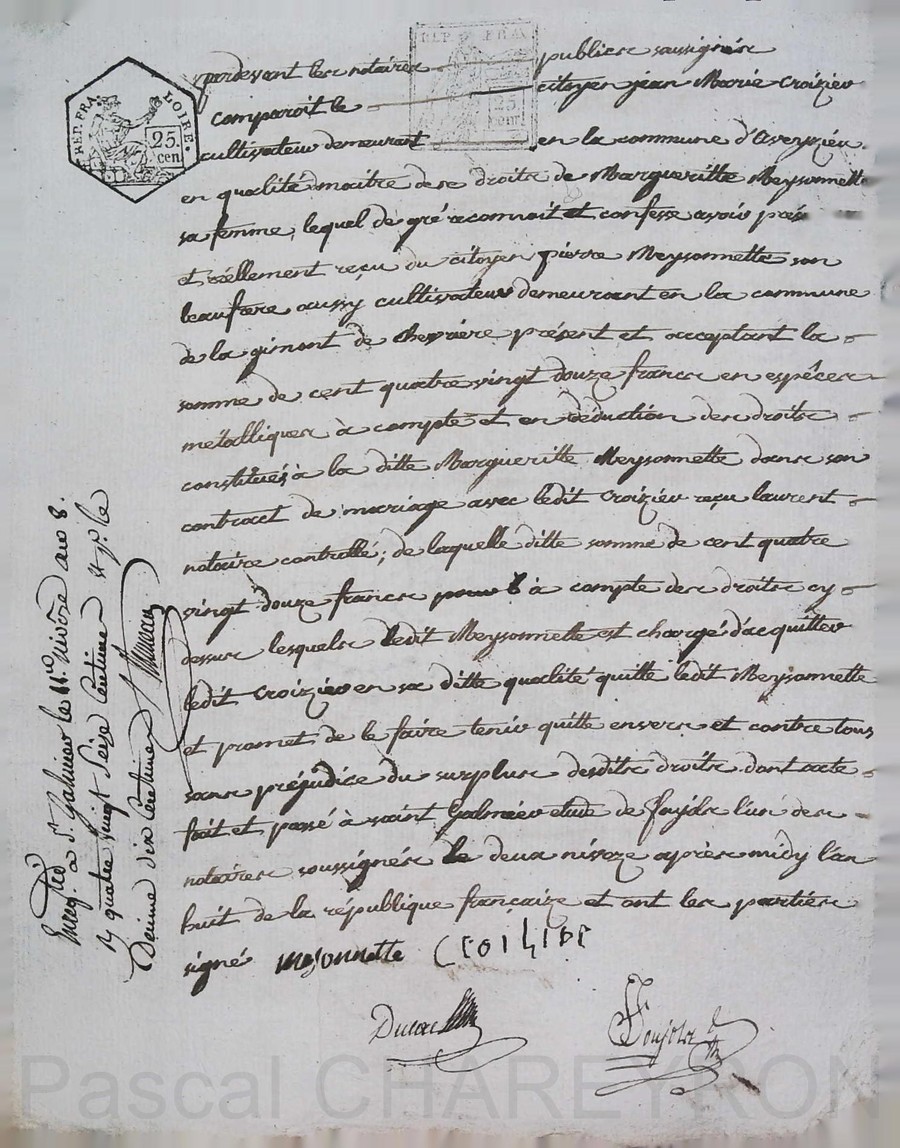 REP. FRA. LOIRE.
25. cen
REP. FRA.
25 cen
pardevant les notaires publics soussignés
comparoit le citoyen jean Marie Croizier
cultivateur demeurant en la commune d'Aveyzieu
en qualité maitre des droits de Margueritte Meysonnette
sa femme, lequel de gré reconnoit et confesse avoir
et réellement reçu du citoyen pierre Meysonnette son
beaufrere aussy cultivateur demeurant en la commune
de la gimont de Chevriere présent et acceptant la
somme de cent quatre vingt douze francs en espéces
métalliques à compte et en déduction des droits
constitués à la ditte Margueritte Meysonnette dans son
contract de mariage avec ledit Croizieu reçu laurent
notaire controllé; de laquelle ditte somme de cent quatre
vingt douze francs à compte des droits cy
dessus lesquels ledit Meysonnette est chargé d'acquitter
ledit Croizier en sa ditte qualité quitte ledit Meysonnette
et promet de le faire tenir quitte envers et contre tous
sans préjudice du surplus desdits droits dont acte
fait et passé à saint Galmier etude de foujols l'un des
notaires soussignés le deux nivoze après midy l'an
huit de la république françaize et ont les parties
signé mesonnette
Foujols
Enreg. à St. Galmier le nivôse an 8.
quatre vingt seize centimes
Decime dix centimes
Pascal CHAREYRON